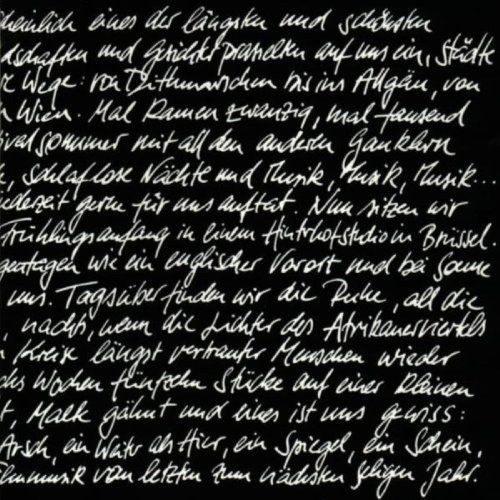 heinlich eines der längsten und schönsten
dschaften und Gesichter prasselten auf uns ein, Städte
e Wege: von Dithmarschen bis ins Allgäu, von
n Wien. Mal kamen zwanzig, mal tausend
ivalsommer mit all den anderen Gauklern
, schlaflose Nächte und Musik, Musik, Musik...
ederzeit gerne für uns auftat. Nun sitzen wir
Frühlingsanfang in einem Hinterhofstudio in Brüssel.
getagen wie ein englischer Vorort und bei Sonne
uns. Tagsüber finden wir die Ruhe, all die
, nachts, wenn die Lichter des Afrikanerviertels
n Kreise längst vertrauter Menschen wieder
chs Wochen fünfzehn Stücke auf einer kleinen
t, Malk gähnt und eines ist uns gewiss:
Arsch, ein Weiter als Hier, ein Spiegel, ein Schein,
lmmusik vom letzten zum nächsten seligen Jahr.